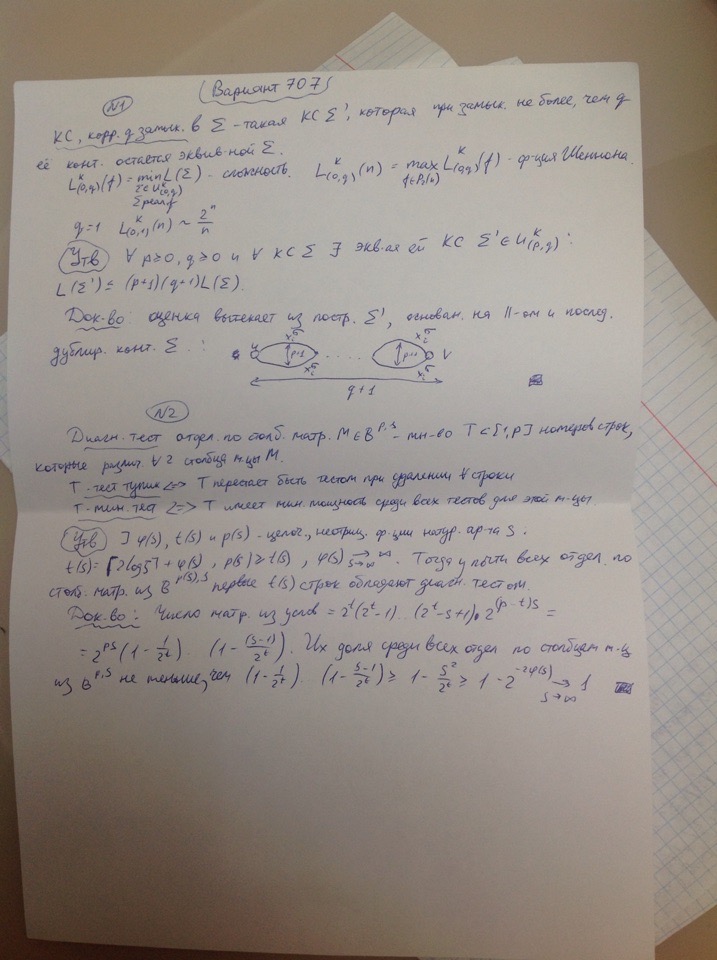 (Вариант 707)
N1
КС, корр. q замык. в Σ - такая КС Σ', которая при замык. не более, чем q
её конт. остаётся эквив-ной Σ.
L^K_(0,q)(f) = min L(Σ) - сложность. L^K_(0,q)(n) = max L^K_(0,q)(f) - ф-ция Шеннона.
Σ∈U^K_(0,q) f∈P₂(n)
Σ реал. f
q=1 L^K_(0,1)(n) ~ 2ⁿ/n
Утв ∀ p≥0, q≥0 и ∀ КС Σ ∃ экв-ая ей КС Σ'∈U^K_(p,q):
L(Σ') ≤ (p+1)(q+1)L(Σ).
Док-во: оценка вытекает из постр. Σ', основан. на ||-ом и послед.
дублир. конт. Σ.:
u x_i^σ p+1 x_i^σ . . . . x_i^σ p+1 x_i^σ v
q+1
N2
Диагн. тест отдел. по столб. матр. M∈B^{p,s} - мн-во T⊂[1,p] номеров строк,
которые различ. ∀ 2 столбца м-цы M.
T - тест тупик <=> T перестает быть тестом при удалении ∀ строки
T - мин. тест <=> T имеет мин. мощность среди всех тестов для этой м-цы.
Утв ∃ φ(s), t(s) и p(s) - целоч., неотриц. ф-ции натур. ар-та s.
t(s) = ⌈2log s⌉ + φ(s), p(s) ≥ t(s), φ(s) →_{s→∞} ∞. Тогда у почти всех отдел. по
столб. матр. из B^{p(s),s} первые t(s) строк обладают диагн. тестом.
Док-во: Число матр. из усло = 2^t(2^t-1)...(2^t-s+1)·2^{(p-t)s} =
= 2^{ps}(1-1/2^t)...(1-(s-1)/2^t). Их доля среди всех отдел по столбцам м-ц
из B^{p,s} не меньше, чем (1-1/2^t)...(1-(s-1)/2^t) ≥ 1-s²/2^t ≥ 1-2^{-2φ(s)} →_{s→∞} 1